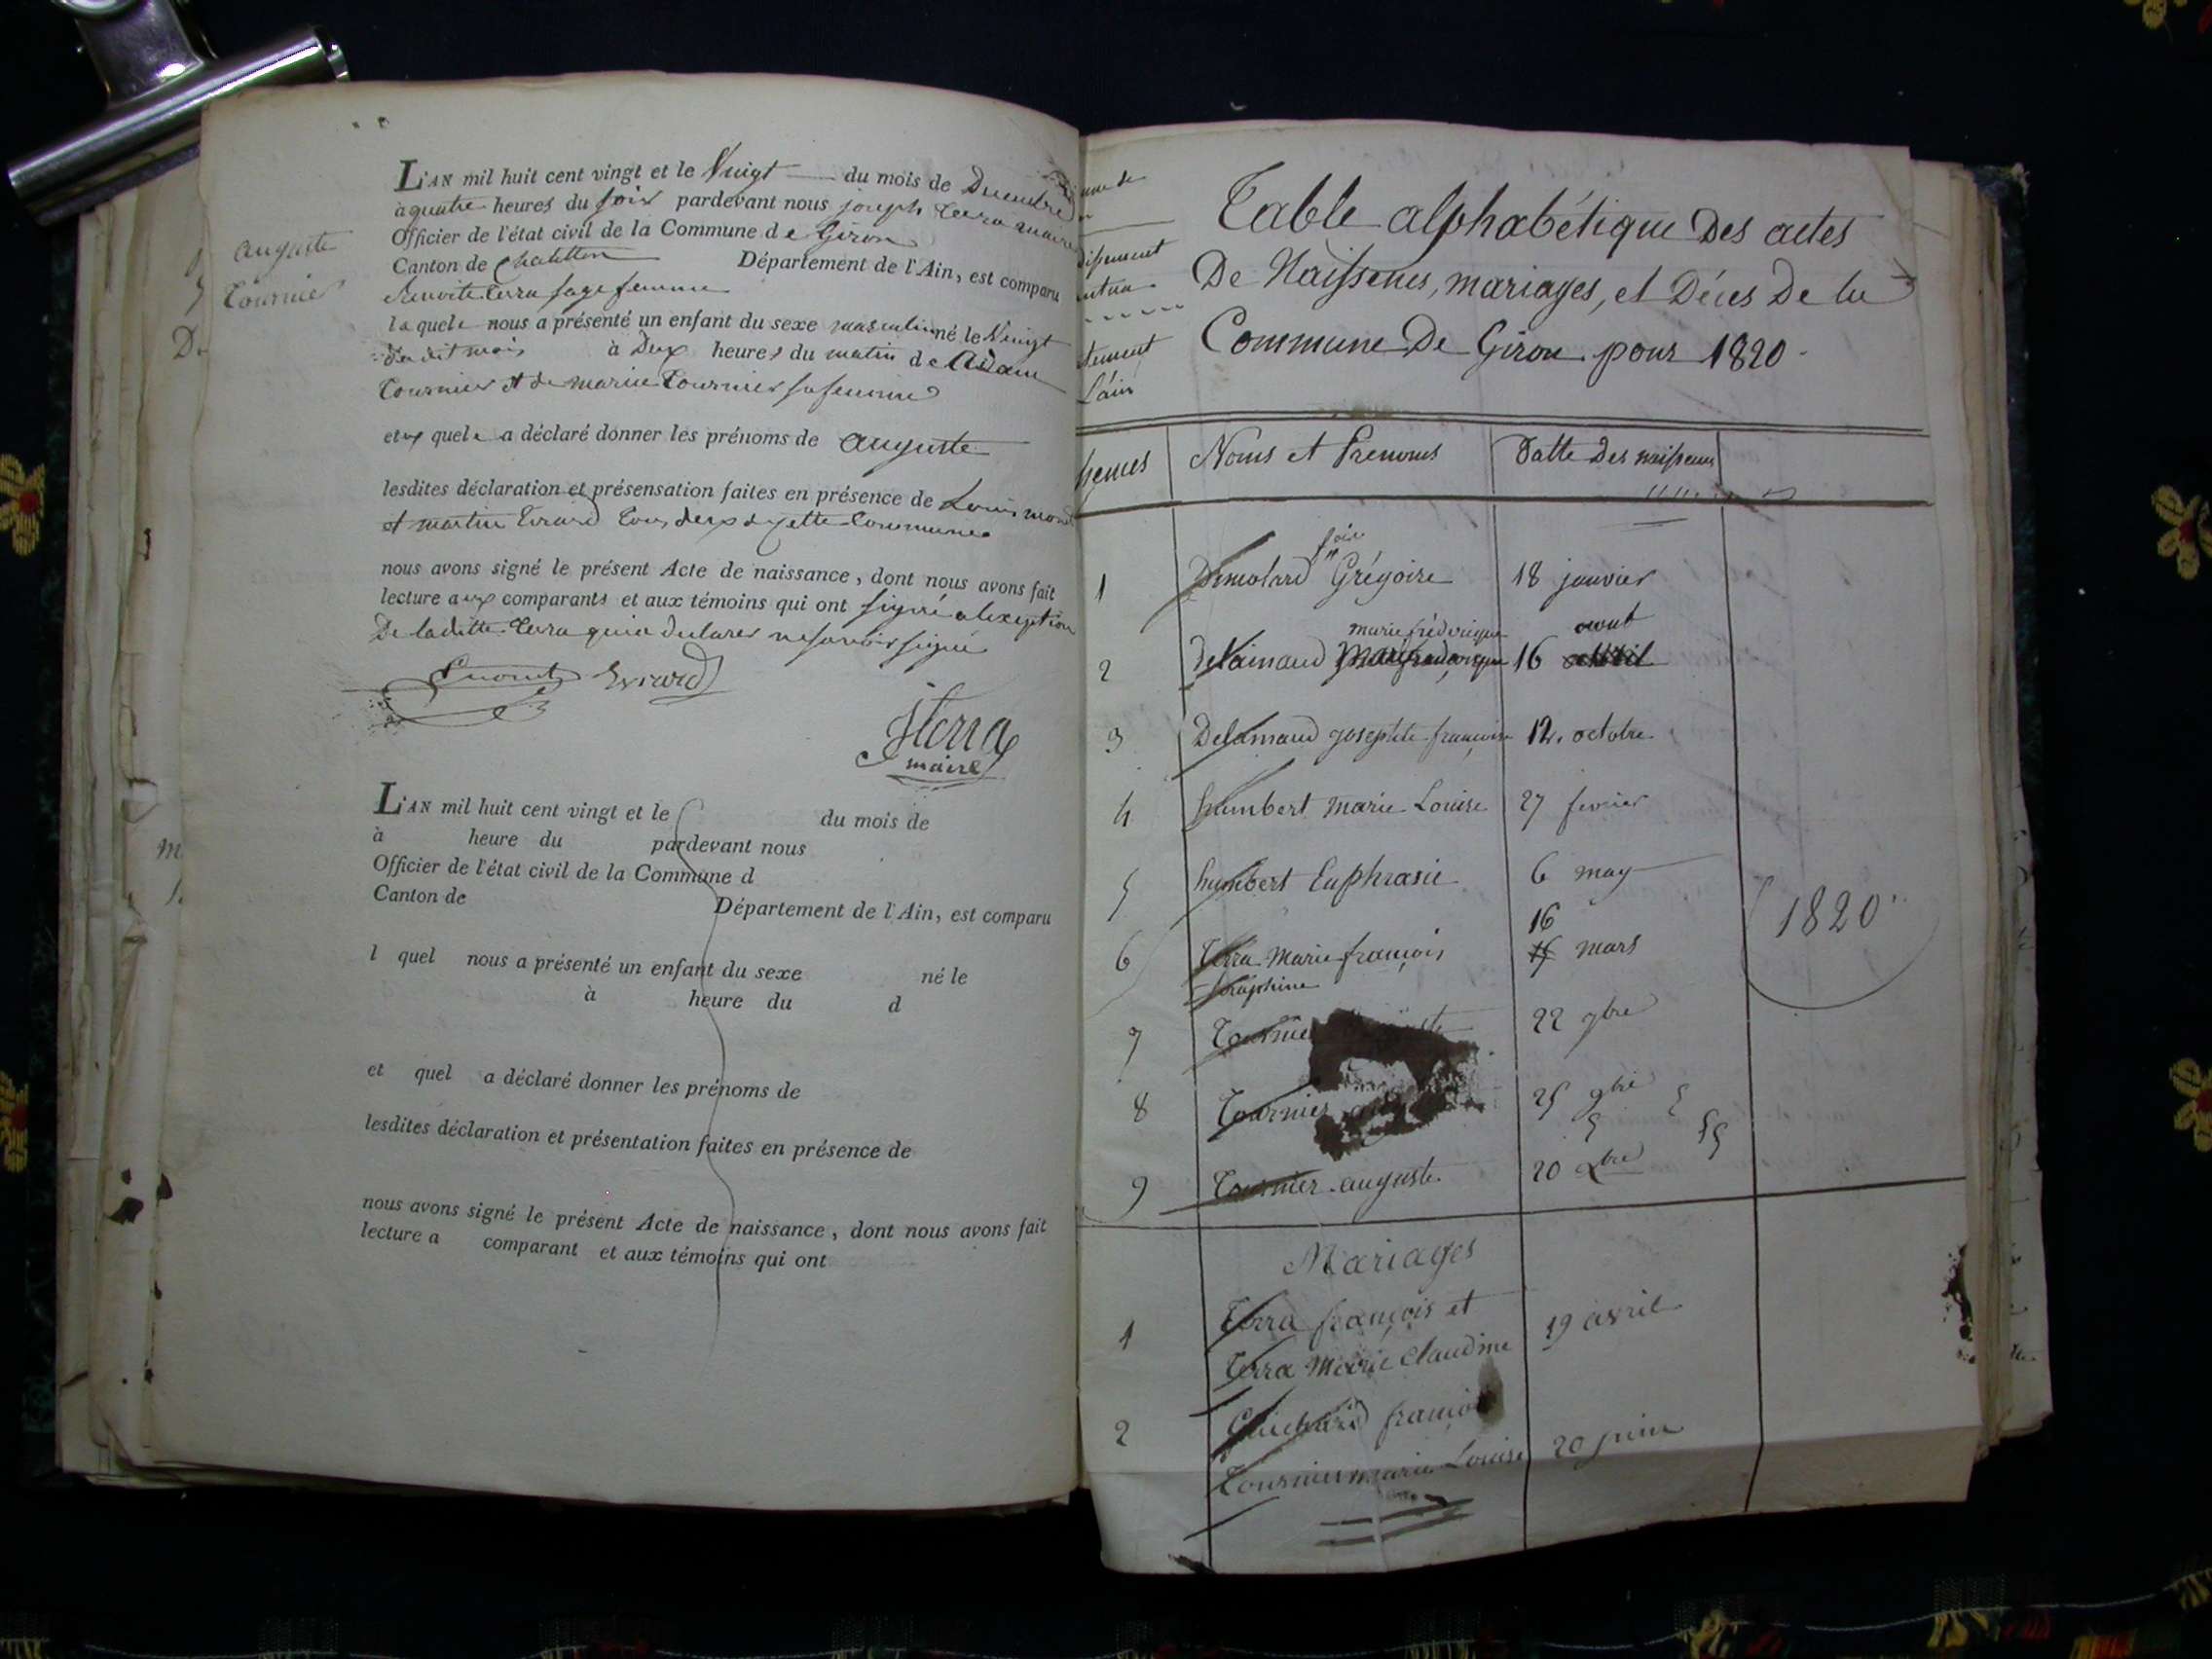 auguste
tournier
L'AN mil huit cent vingt et le Vingt du mois de Decembre
à quatre heures du soir pardevant nous joseph terra maire
Officier de l'état civil de la Commune de Giron
Canton de Chatillon Département de l'Ain, est comparu
terra sage femme
laquele nous a présenté un enfant du sexe masculin né le Vingt
du dit mois à Deux heures du matin de Adam
tournier et de marie tournier sa femme
quele a déclaré donner les prénoms de auguste
lesdites déclaration et présensation faites en présence de Louis
et martin Evrard tous deux de cette Commune
nous avons signé le présent Acte de naissance, dont nous avons fait
lecture aux comparants et aux témoins qui ont signé a lexeption
De laditte terra qui a declarer ne savoir signé
Evrard
JTerra
maire
L'AN mil huit cent vingt et le du mois de
à heure du pardevant nous
Officier de l'état civil de la Commune d
Canton de Département de l'Ain, est comparu
l quel nous a présenté un enfant du sexe né le
à heure du d
et quel a déclaré donner les prénoms de
lesdites déclaration et présentation faites en présence de
nous avons signé le présent Acte de naissance, dont nous avons fait
lecture a comparant et aux témoins qui ont
Table alphabétique Des actes
De Naissences, mariages, et Déces De la
Commune De Giron pour 1820
Noms et Prenoms Datte Des naissences
1 Grégoire 18 janvier
marie fréderique aout
2 16
3 josephte françoise 12. octobre
4 humbert marie Louise 27 fevrier
5 humbert Euphrasie 6 may
16
6 Terra Marie françois mars
Seraphine
1820
7 Tournier 22 7bre
8 Tournier 25 9bre
9 Tournier auguste 20 Xbre
Mariages
1 Terra françois et
Terra Marie Claudine 19 avril
2 Guichard françois
Tournier marie Louise 20 juin